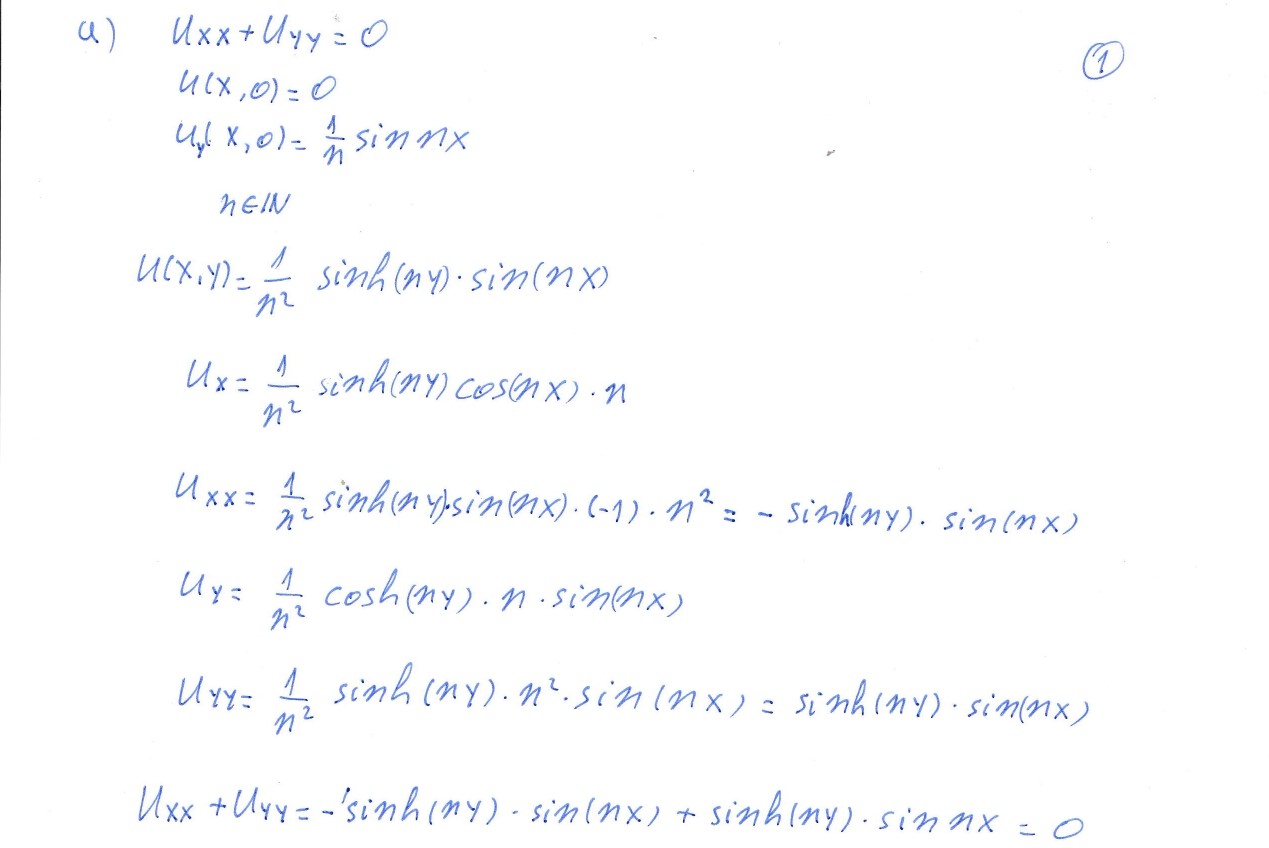 a) Uxx + Uyy = 0
①
U(x,0) = 0
Uy(x,0) = 1/n sin nx
n∈ℕ
U(x,y) = 1/n² sinh(ny)·sin(nx)
Ux = 1/n² sinh(ny) cos(nx)·n
Uxx = 1/n² sinh(ny)·sin(nx)·(-1)·n² = - sinh(ny)·sin(nx)
Uy = 1/n² cosh(ny)·n·sin(nx)
Uyy = 1/n² sinh(ny)·n²·sin(nx) = sinh(ny)·sin(nx)
Uxx + Uyy = - sinh(ny)·sin(nx) + sinh(ny)·sin nx = 0